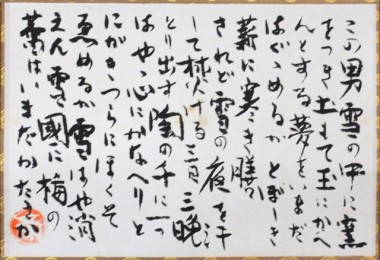 この男雪の中に窯
をつき土もて玉にかへ
んとする夢をいまだ
はぐゝめるかとぼしき
薪に寒き膳
されど雪の夜を汗
して柹く三日三晩
とり出す陶の千に一つ
はやゝ心にかなへりと
にがきつらにほくそ
ゑめるか雪はや消
えん雪国に梅の
蕾はいまだかたきか